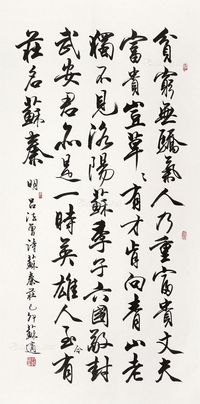 貧窮無驕氣人乃重富貴丈夫
富貴豈草〻有才肯向青山老
獨不見洛陽蘇季子六國敬封
武安君亦是一時英雄人至今有
莊名蘇秦
明呂法曾詩蘇秦莊己卯蘇適